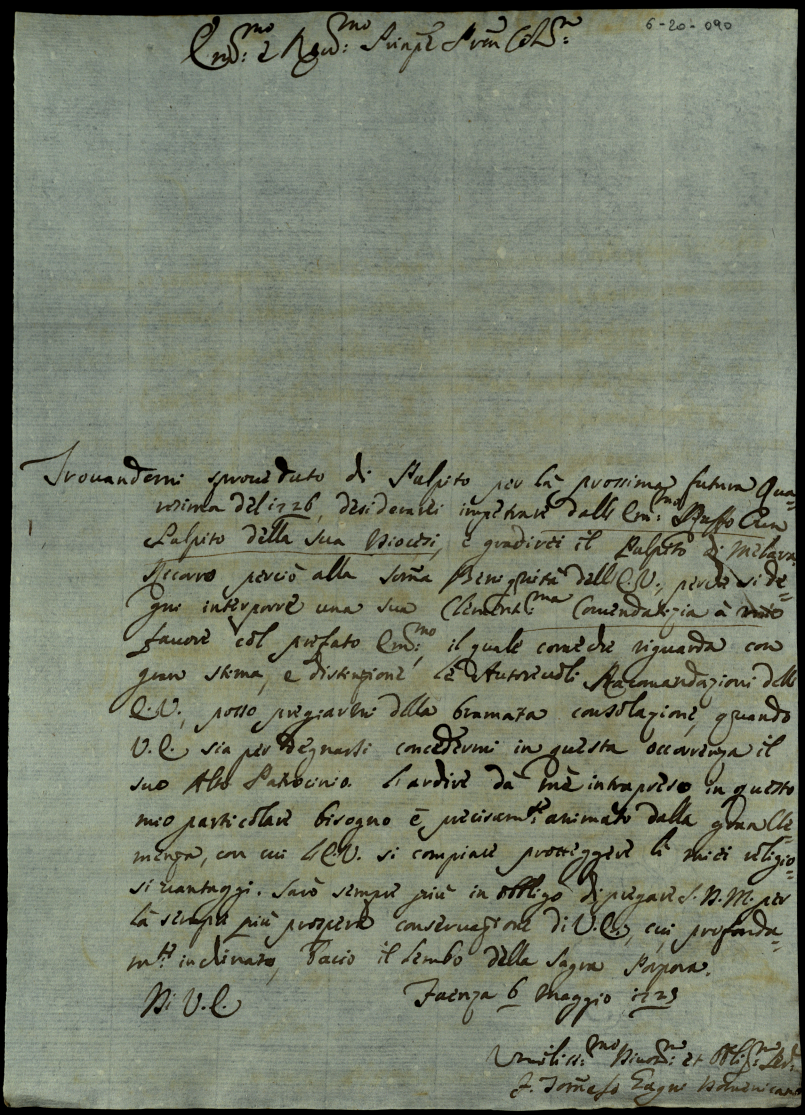 6-20-090
Em:mo e Rev:mo Prinpe Pron Col:mo
Trovandomi sproveduto di Pulpito per la prossima futura Qua=
resima del 1726, desiderarei impetrare dall' Em:mo Ruffo un
Pulpito della sua Diocesi, e gradirei il Pulpito di Melara.
Ricorro perciò alla soma Benignità dell' E.V., perche si de=
gni interporre una sua Clementma Comendatizia à mio
favore col prefato Em:mo, il quale come che riguarda con
gran stima, e distinzione, le Autorevoli Racomandazioni dell'
E.V., posso pregiarmi della bramata consolazione, quando
V.E. sia per degnarsi concedermi in questa occorrenza il
suo Alto Patrocinio. L'ardire da mè intrapreso in questo
mio particolare bisogno è precisamte animato dalla gran Cle=
menza, con cui l'E.V. si compiace proteggere li miei religio=
si vantaggi. Sarò sempre più in obbligo di pregare S.D.M. per
la sempre più prospera conservazione di V.E., cui profonda=
mte inchinato, bacio il Lembo della Sagra Porpora.
Di V.E. Faenza 6 Maggio 1725
Umiliss:mo Divot:mo et Obblig:mo
F. Tomaso Domenicano